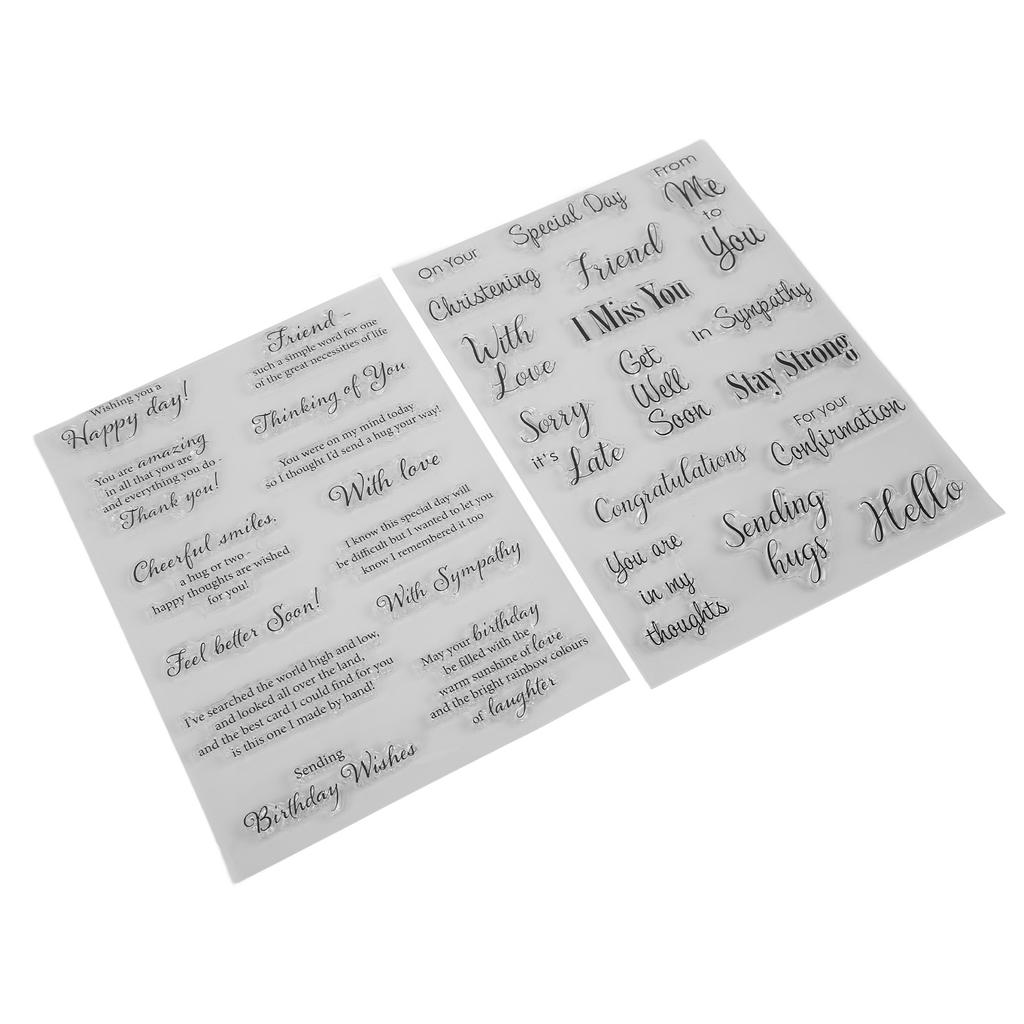 Wishing you a
Happy day!
Friend -
such a simple word for one
of the great necessities of life
You are amazing
in all that you are
and everything you do -
Thank you!
Thinking of You
You were on my mind today
so I thought I'd send a hug your way!
Cheerful smiles,
a hug or two -
happy thoughts are wished
for you!
With love
I know this special day will
be difficult but I wanted to let you
know I remembered it too
Feel better Soon!
With Sympathy
I've searched the world high and low,
and looked all over the land,
and the best card I could find for you
is this one I made by hand!
May your birthday
be filled with the
warm sunshine of love
and the bright rainbow colours
of laughter
Sending
Birthday Wishes
On Your
Special Day
From
Me
to
You
Christening
Friend
With
Love
I Miss You
In Sympathy
Get
Well
Soon
Stay Strong
Sorry
it's Late
For your
Confirmation
Congratulations
You are
in my
thoughts
Sending
hugs
Hello